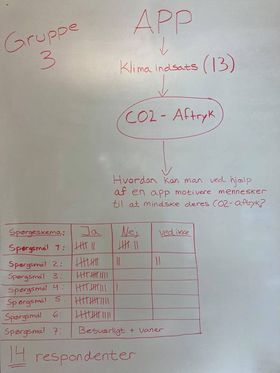 Gruppe
3
APP
Klimaindsats (13)
CO2-Aftryk
Hvordan kan man ved hjælp
af en app motivere mennesker
til at mindske deres CO2-aftryk?
Spørgeskema: Ja Nej ved ikke
Spørgsmål 1:
Spørgsmål 2:
Spørgsmål 3:
Spørgsmål 4:
Spørgsmål 5:
Spørgsmål 6:
Spørgsmål 7: Besværligt + vaner
14 respondenter